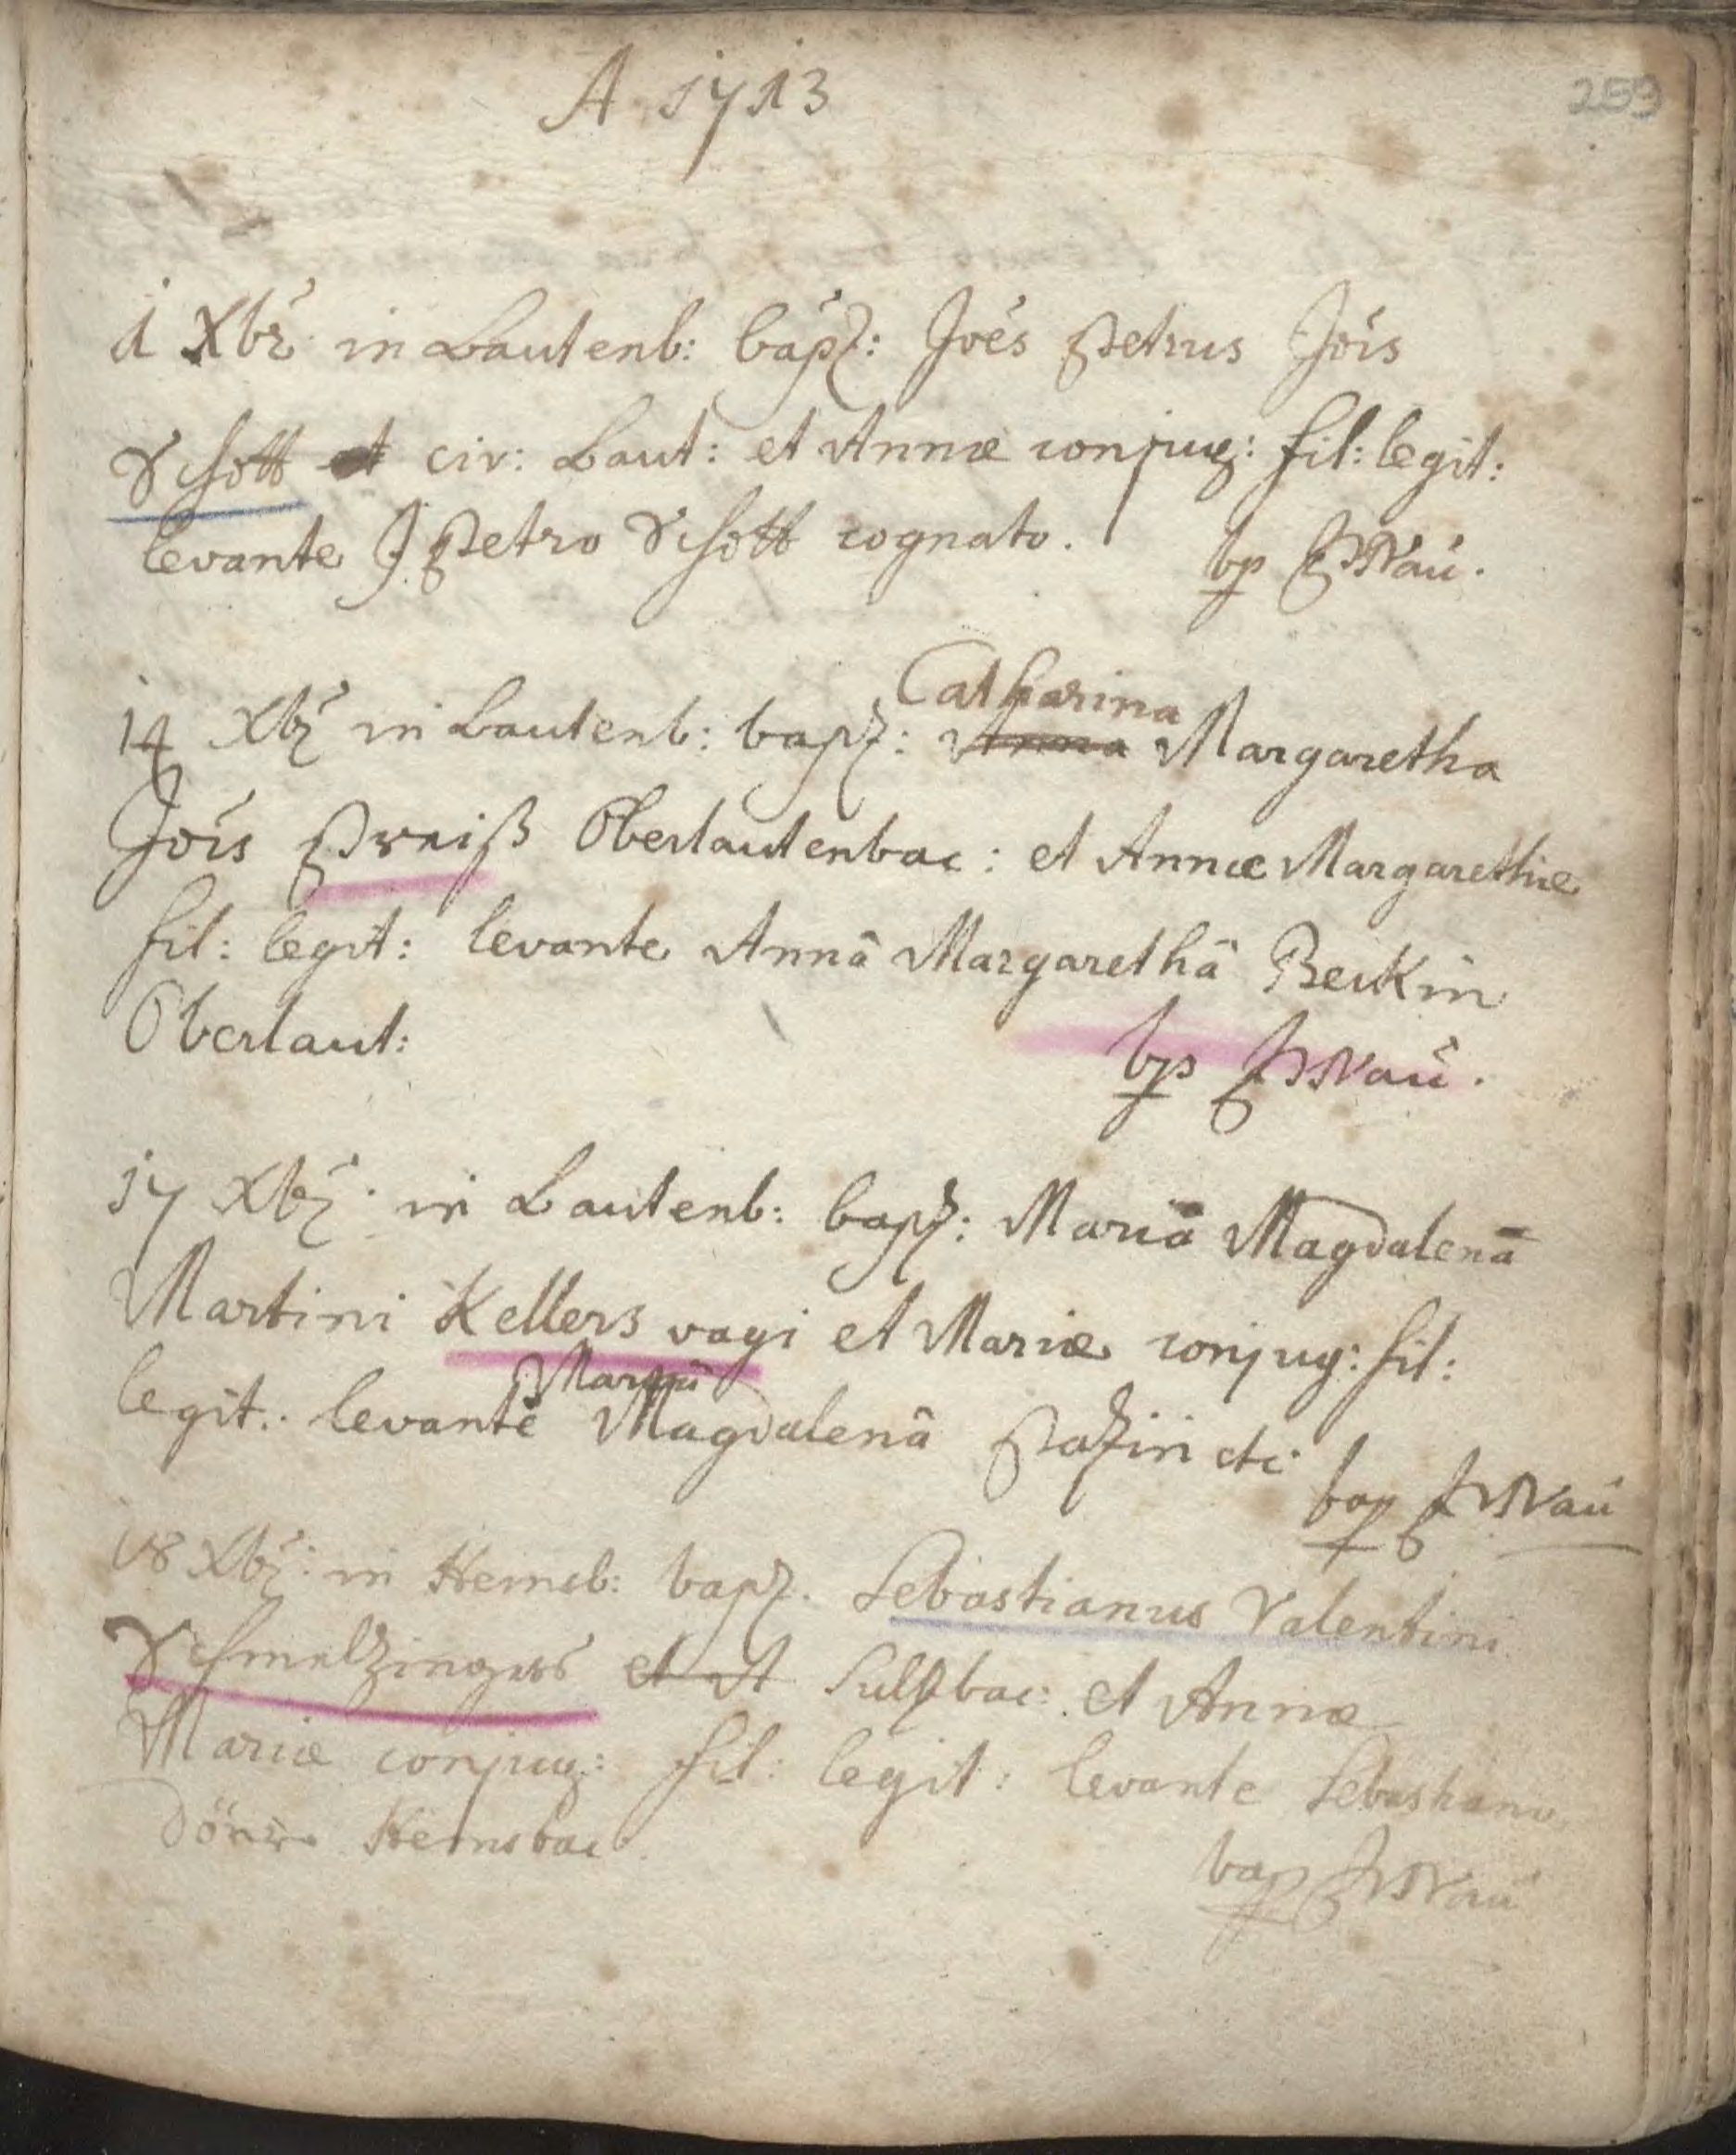 A 1713
259
1 Xbr in Lautenb: bapz: Joes Petrus Jois
Schott et civ: Laut: et Annæ conjug: fil: legit:
levante J Petro Schott cognato.
bp PWNau.
Catharina
14 Xbr in Lautenb: bapz: Anna Margaretha
Jois Preiß Oberlautenbac: et Annæ Margarethæ
fil: legit: levante Annâ Margarethâ Beckin
Oberlaut:
bp PWNau.
17 Xbr: in Lautenb: bapz: Mariã Magdalenã
Martini Kellers vagi et Mariæ conjug: fil:
legit: levante Magdalenâ etc
bap PWNau
18 Xbr: in Hemsb: bapz. Sebastianus Valentini
Schmelzingers et A Sulzbac: et Annæ
Mariæ conjug: fil: legit: levante Sebastiano
Hemsbac.
bap PWNau